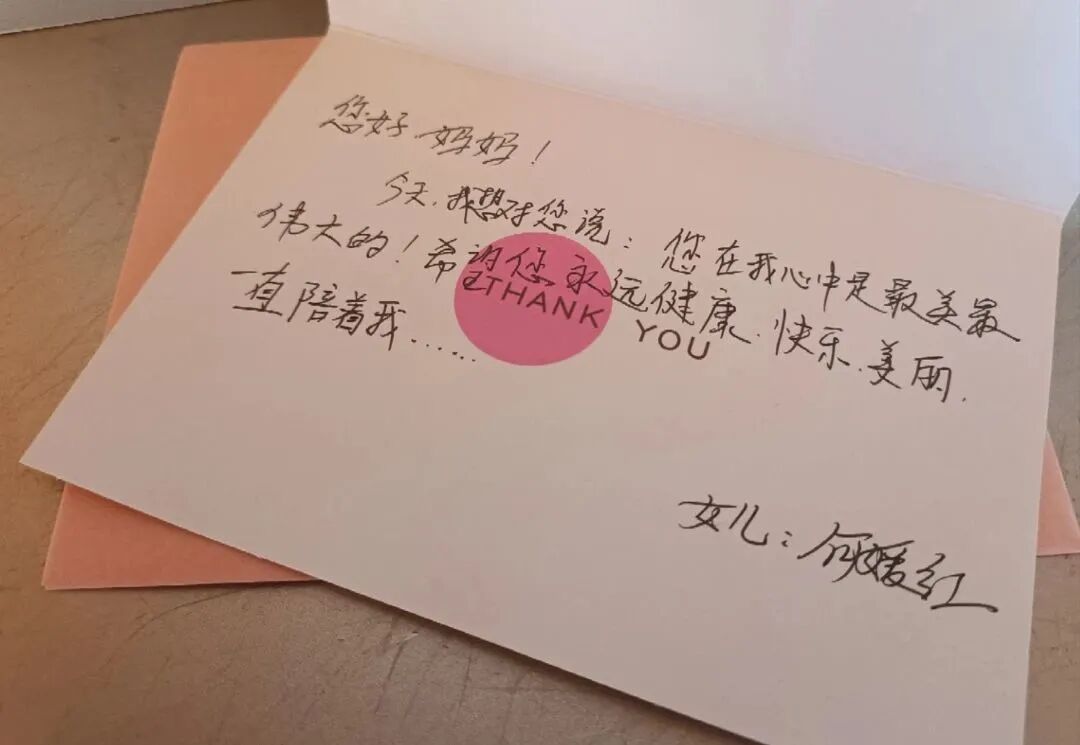 您好,妈妈!
今天,我想对您说:您在我心中是最美最
伟大的!希望您永远健康、快乐、美丽、
一直陪着我......
THANK
YOU
女儿:何媛红